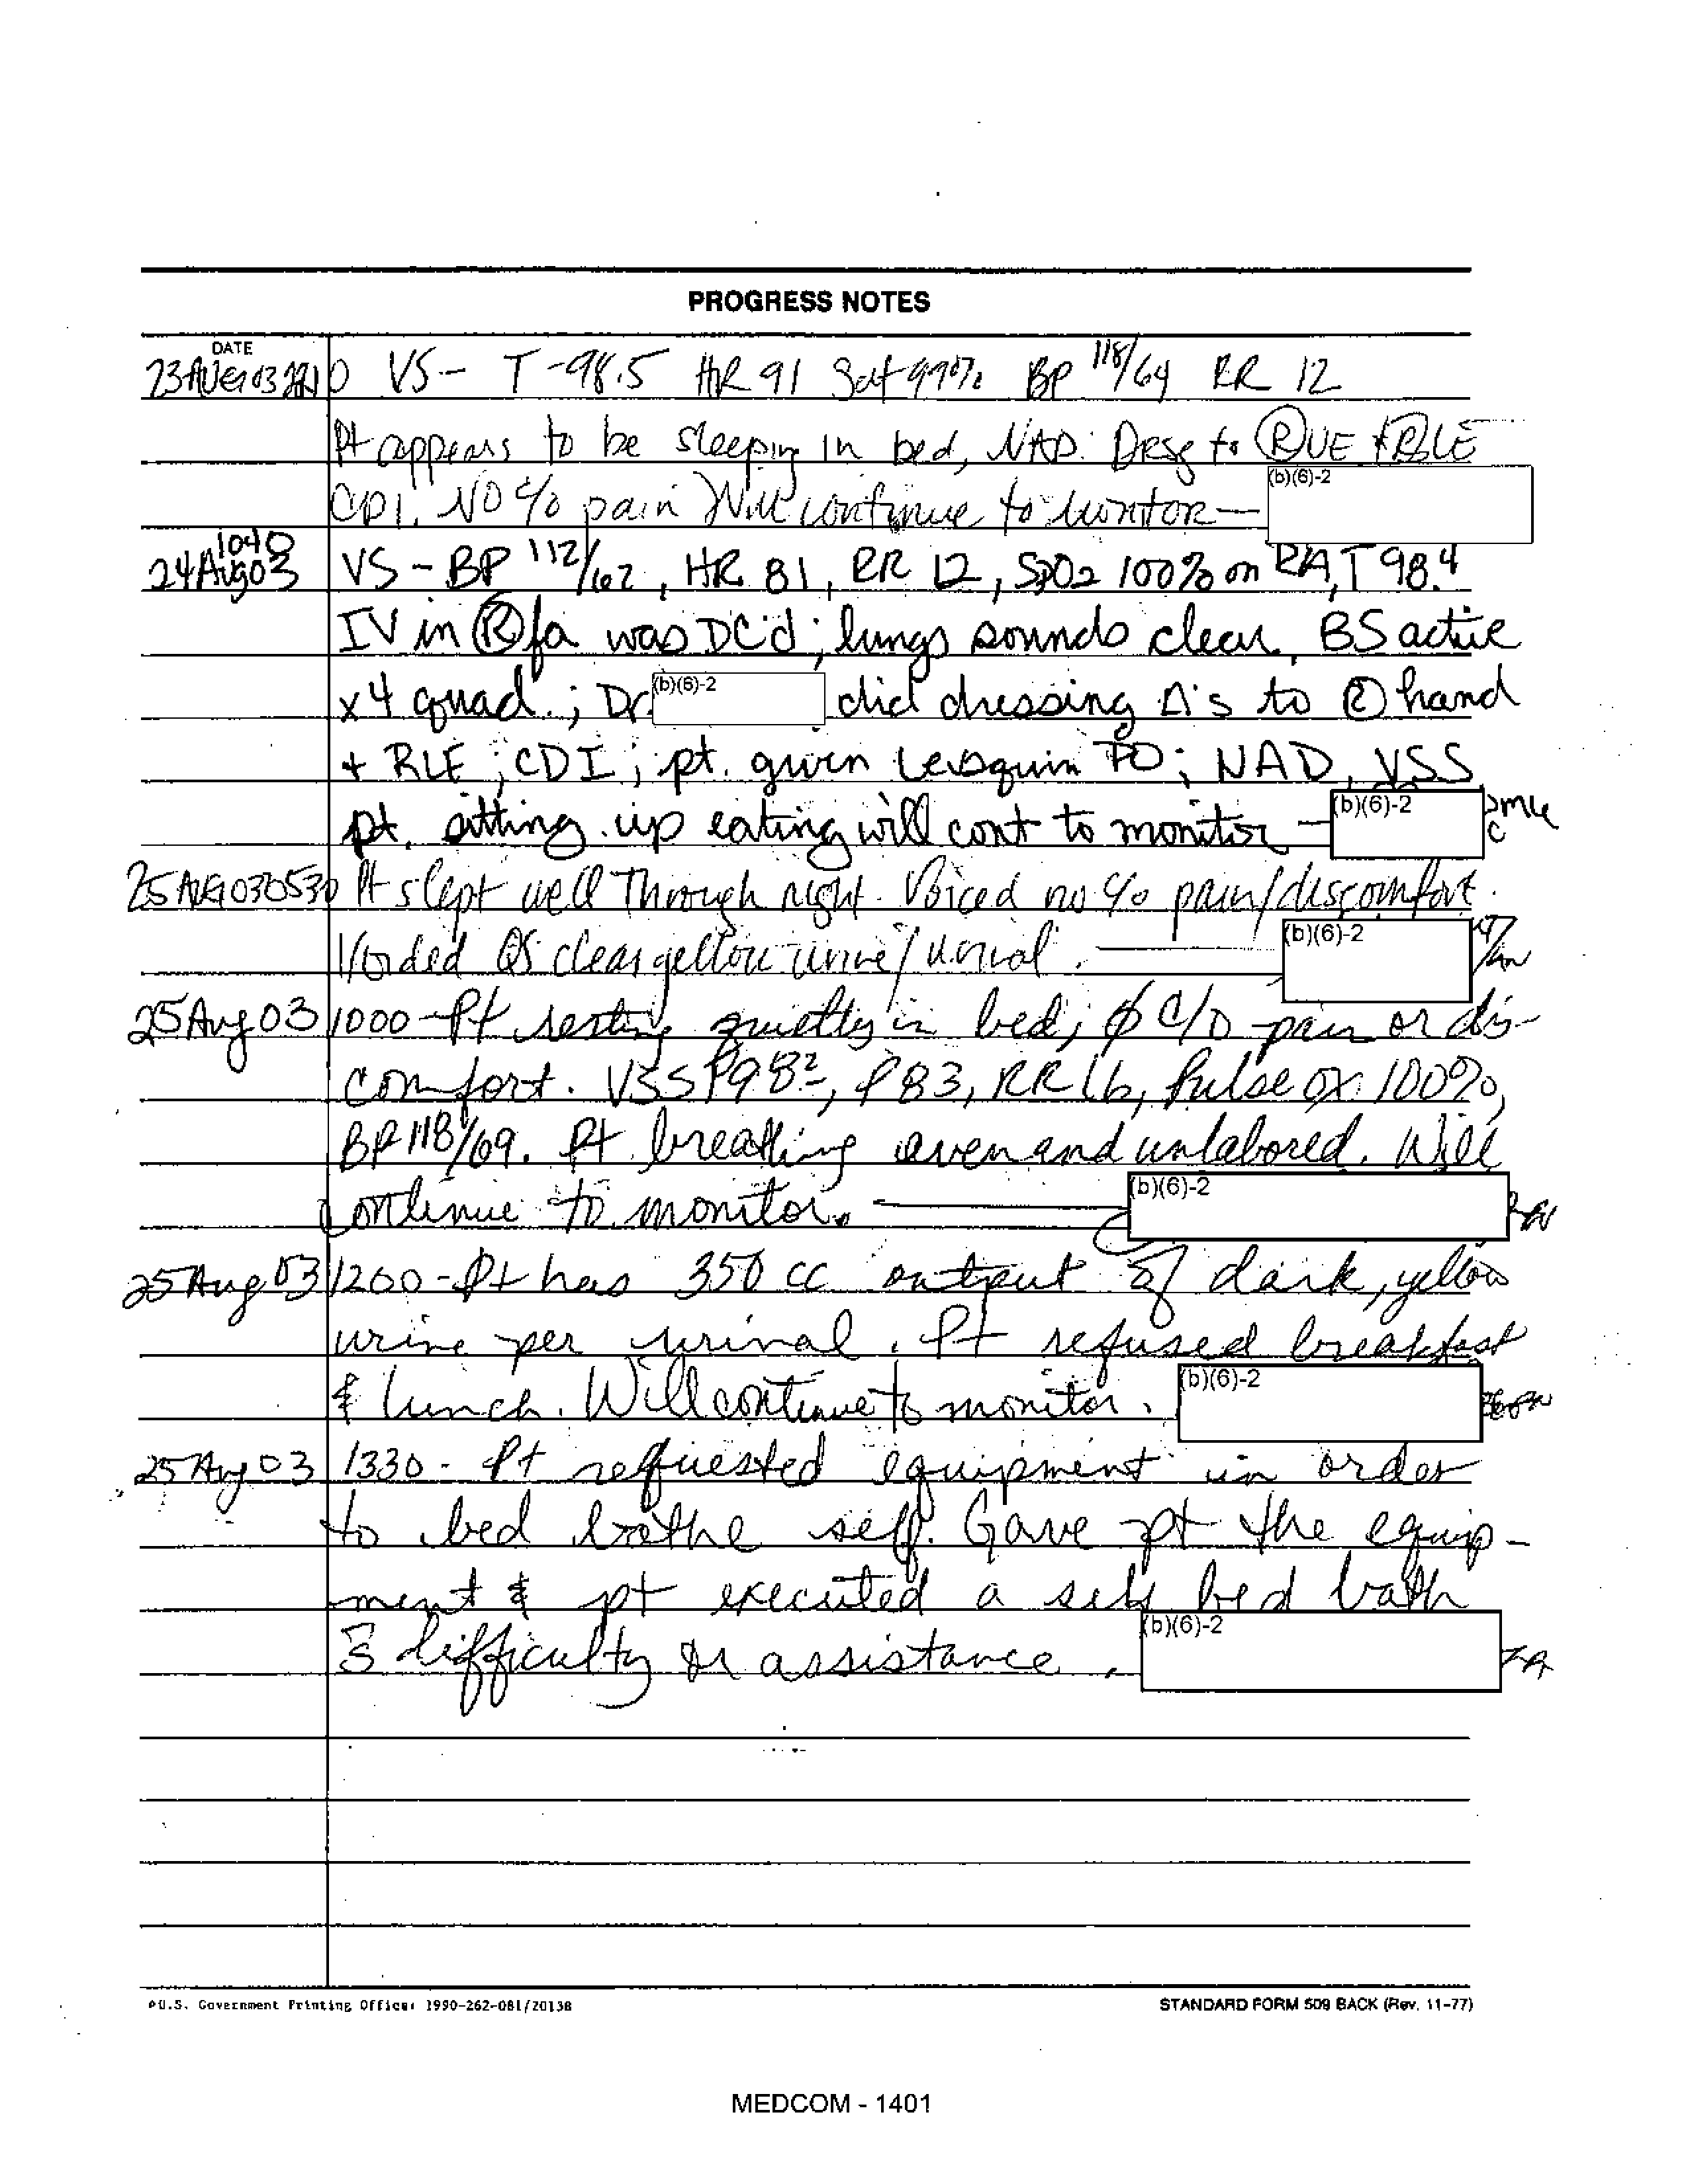 PROGRESS NOTES
DATE
23AUG03 VS- T-98.5 HR 91 Sat 99% BP 118/64 RR 12
Pt appears to be sleeping in bed, NAD. Drsg to Ⓡ UE + RLE
CDI. NO c/o pain Will continue to monitor — (b)(6)-2
1040
24Aug03 VS - BP 112/62, HR 81, RR 12, SpO2 100% on RA, T 98.4
IV in Ⓡ fa was DC'd; lungs sounds clear, BS active
x 4 quad.; Dr. (b)(6)-2 did dressing Δ's to hand
+ RLE; CDI; pt. given Levaquin PO; NAD, VSS
pt. sitting up eating will cont to monitor — (b)(6)-2
25AUG03 0530 Pt slept well Through night. Voiced no c/o pain/discomfort.
Voided QS clear yellow urine/urinal. (b)(6)-2
25Aug03 1000-Pt resting quietly in bed; ∅ c/o pain or dis-
comfort. VSS 98², P83, RR 16, Pulse ox 100%,
BP 118/69. Pt breathing even and unlabored. Will
continue to monitor. (b)(6)-2
25Aug03 1200-Pt has 350 cc output of dark, yellow
urine per urinal. Pt refused breakfast
& lunch. Will continue to monitor. (b)(6)-2
25Aug03 1330- Pt requested equipment in order
to bed bathe self. Gave pt the equip-
ment & pt executed a self bed bath
s̄ difficulty or assistance. (b)(6)-2
U.S. Government Printing Office: 1990-262-081/20138
STANDARD FORM 509 BACK (Rev. 11-77)
MEDCOM - 1401